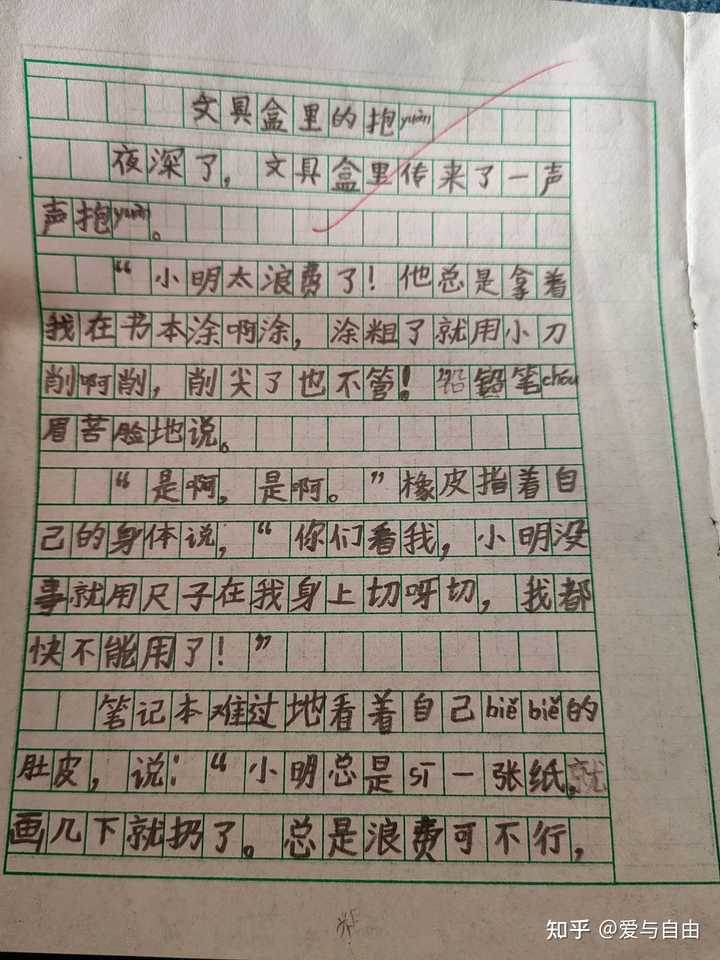 文具盒里的抱yuàn
夜深了，文具盒里传来了一声
声抱yuàn。
“小明太浪费了！他总是拿着
我在书本涂啊涂，涂粗了就用小刀
削啊削，削尖了也不管！铅笔chóu
眉苦脸地说。
“是啊，是啊。”橡皮指着自
己的身体说，“你们看我，小明没
事就用尺子在我身上切呀切，我都
快不能用了！”
笔记本难过地看着自己biě biě的
肚皮，说：“小明总是sī一张纸，就
画几下就扔了。总是浪费可不行，
知乎 @爱与自由